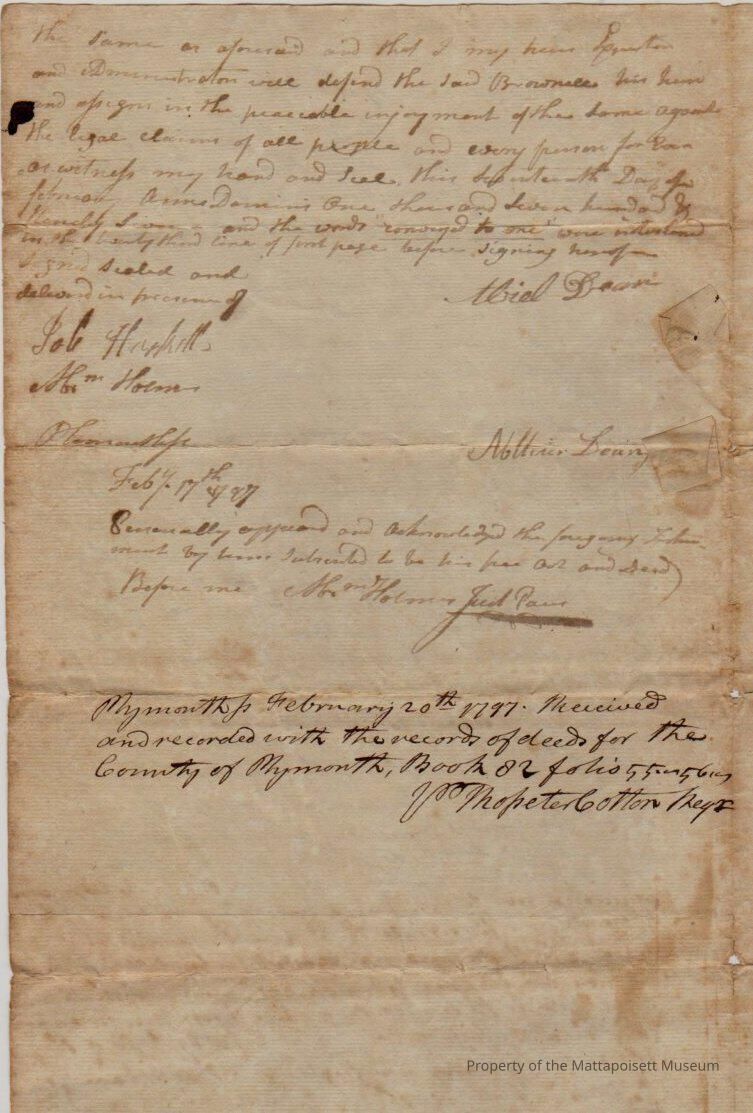 the same as aforesaid and that I my heirs Executors
and Administrators will defend the said Brownell his heirs
and assigns in the peaceable injoyment of the same against
the legal claims of all people and every person for Ever
as witness my hand and Seal, this seventeenth Day of
february Anno Domini One thousand Seven hundred &
Ninety Seven and the words "conveyed to one" were interlined
in the twenty third line of first page before signing hereof
Signed Sealed and
delivered in presence of
Abiel Dean
Job Haskell
Abrm Holmes
Plymouth ss
Dean
Feby 17th 1797
Personally appeared and acknowledged the foregoing Instru-
ment by him Subscribed to be his free Act and Deed
Before me Abrm Holmes Just Pacis
Plymouth ss February 20th 1797. Received
and recorded with the records of deeds for the
County of Plymouth, Book 82 folio 55 56
Pr Rosseter Cotton Regr
Property of the Mattapoisett Museum